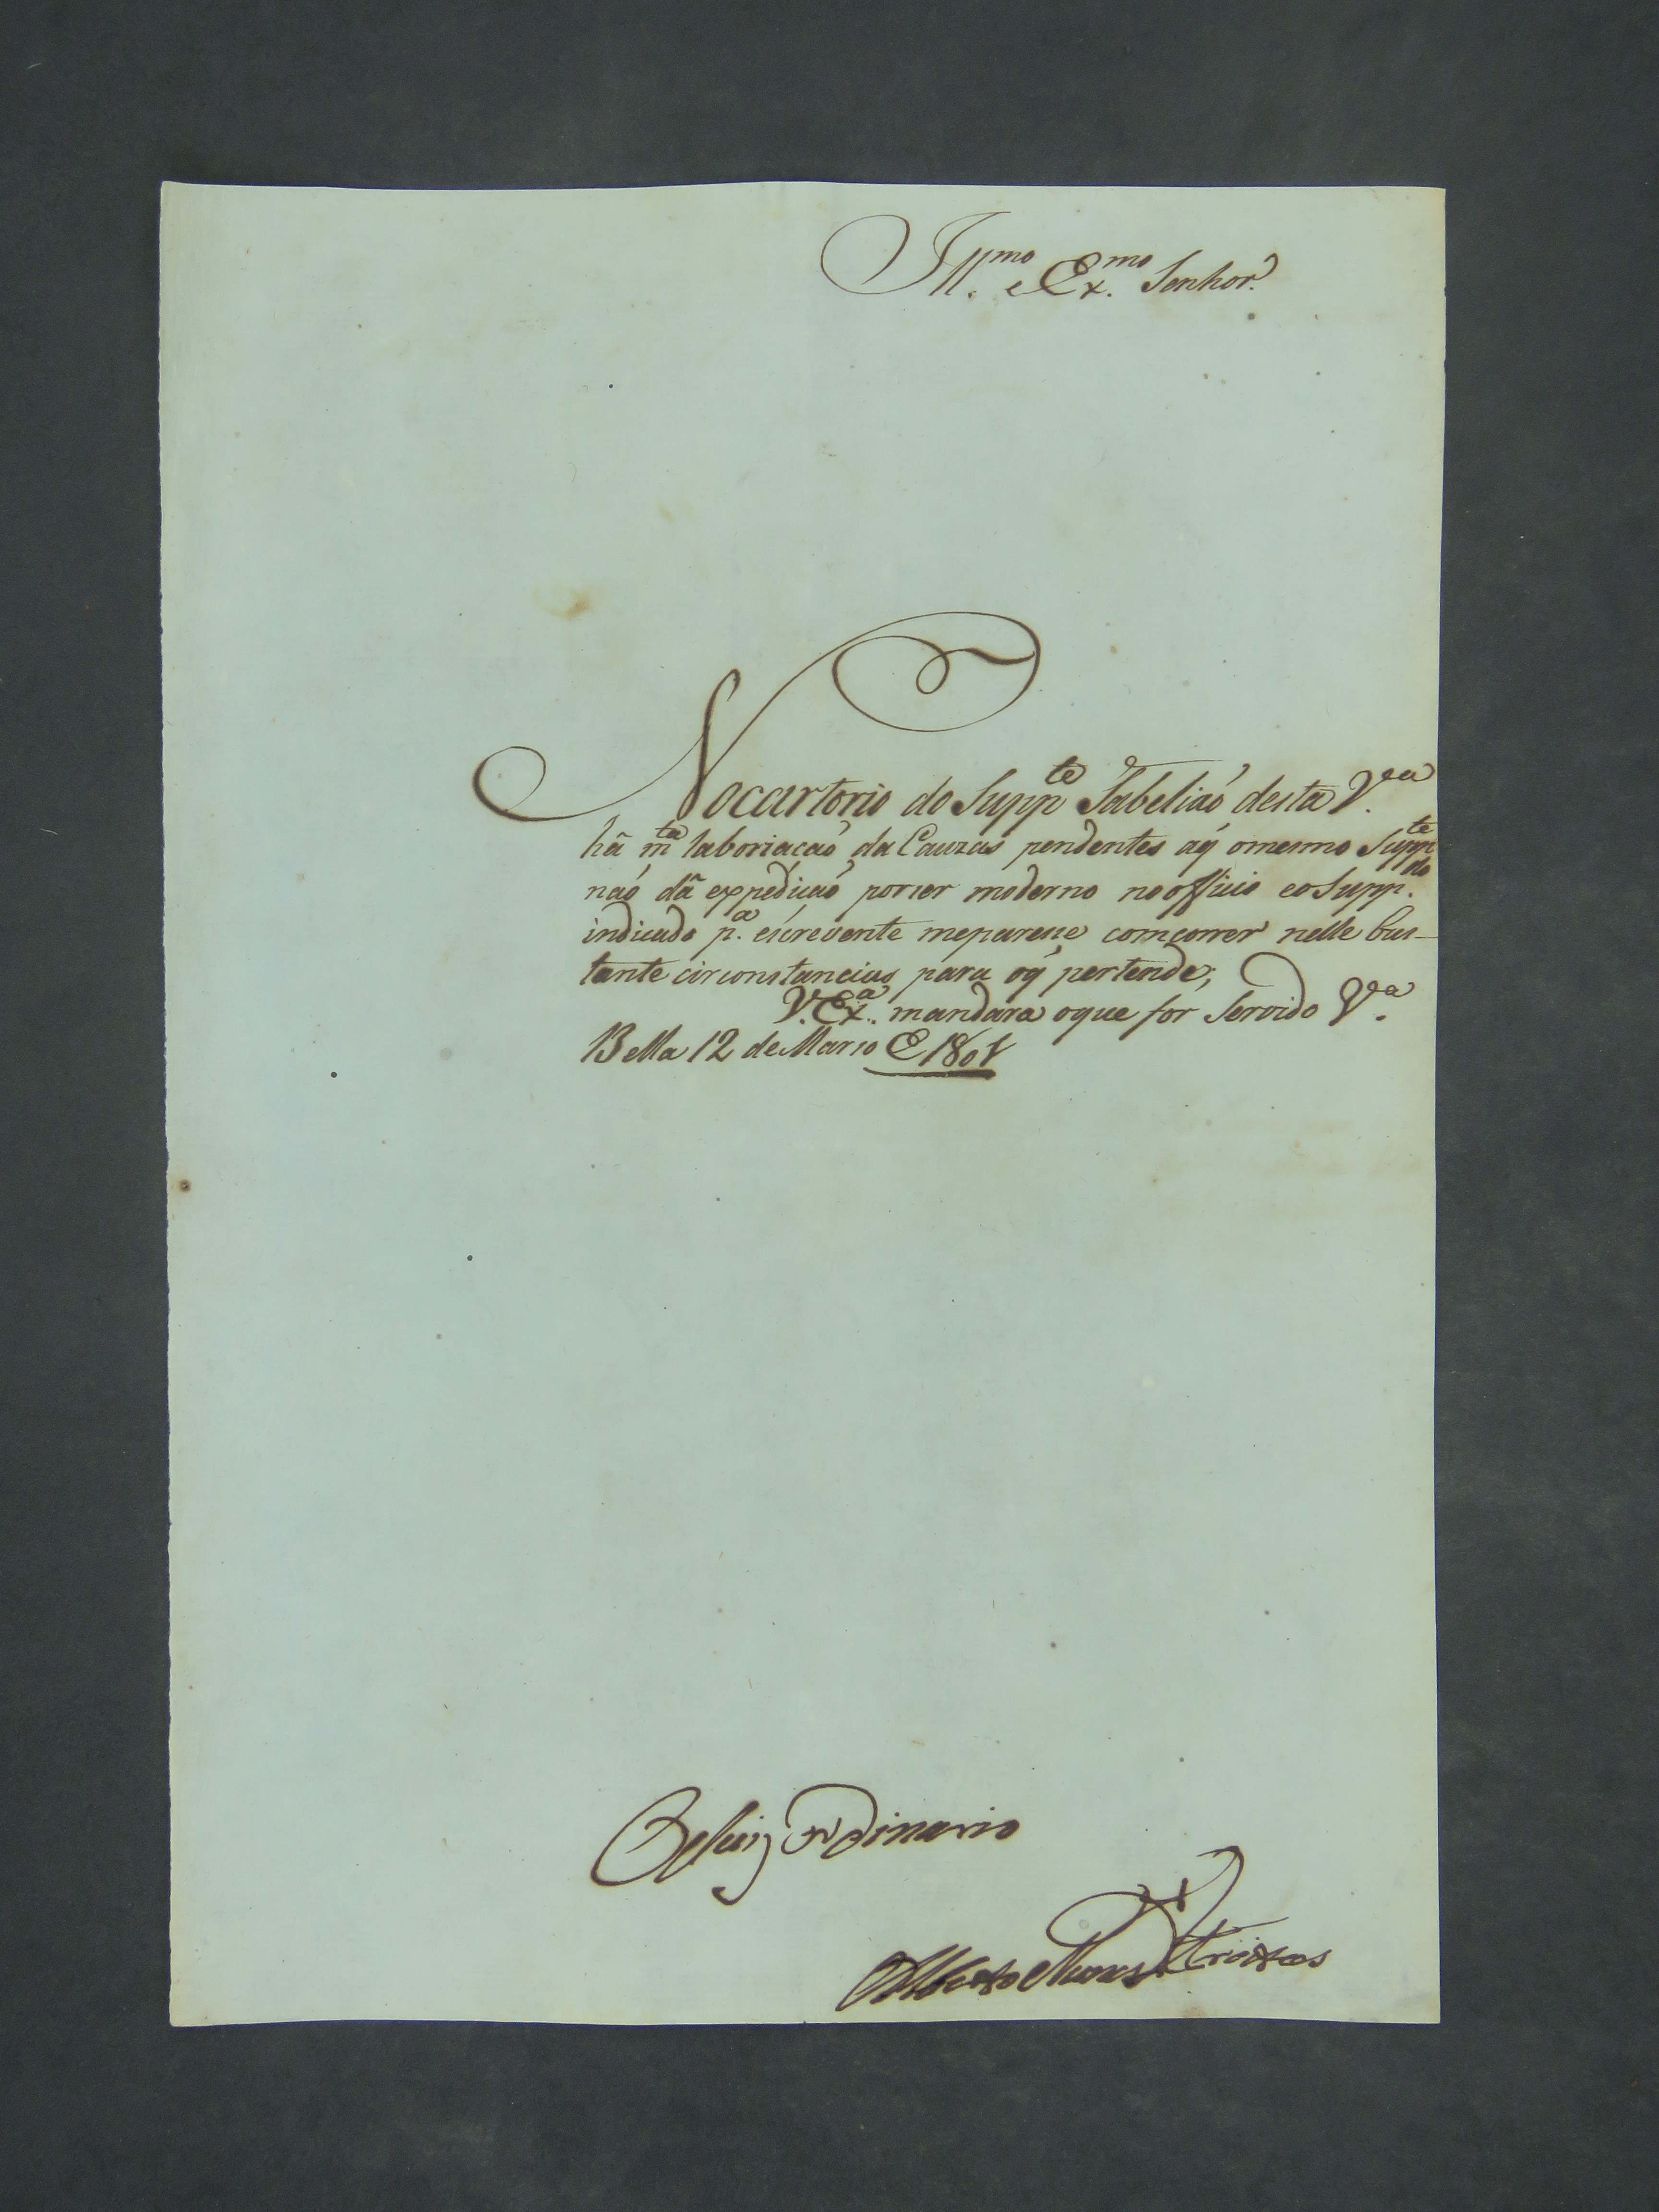 Ill.mo e Ex.mo Senhor.
No cartorio do Supp.te Tabeliaó desta V.ea
hã m.ta laboriacaó da Cauzas pendentes aq̃ omesmo Supp.te
naó dã expedicaó porser moderno no officio eo Supp.do
indicado p.a escrevente meparesse comcorrer nelle bas-
tante circonstancias para oq̃ pertende;
V. Ex.a mandara oque for Servido V.a
Bella 12 de Marso E 1801
O Juiz Ordinario
Alberto Nunes